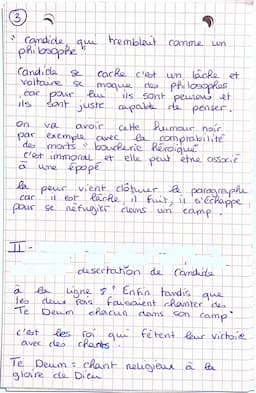 3
" candide qui tremblait comme un
philosophe "
Candide se cache c'est un lâche et
voltaire se moque des philosophes
car pour lui ils sont peureux et
ils sont juste capable de penser.
on va avoir cette humour noir
par exemple avec la comptabilité
des morts " boucherie héroïque "
c'est immoral et elle peut être associé
à une épopé
la peur vient clôturer le paragraphe
car il est lâche il fuit, il s'échappe
pour se réfugier dans un camp.
II -
désertation de Candide
à la ligne 9 " Enfin tandis que
les deux rois faisaient chanter des
Te Deum chacun dans son camp "
c'est les roi qui fêtent leur victoire
avec des chants.
Te Deum = chant religieux à la
gloire de Dieu